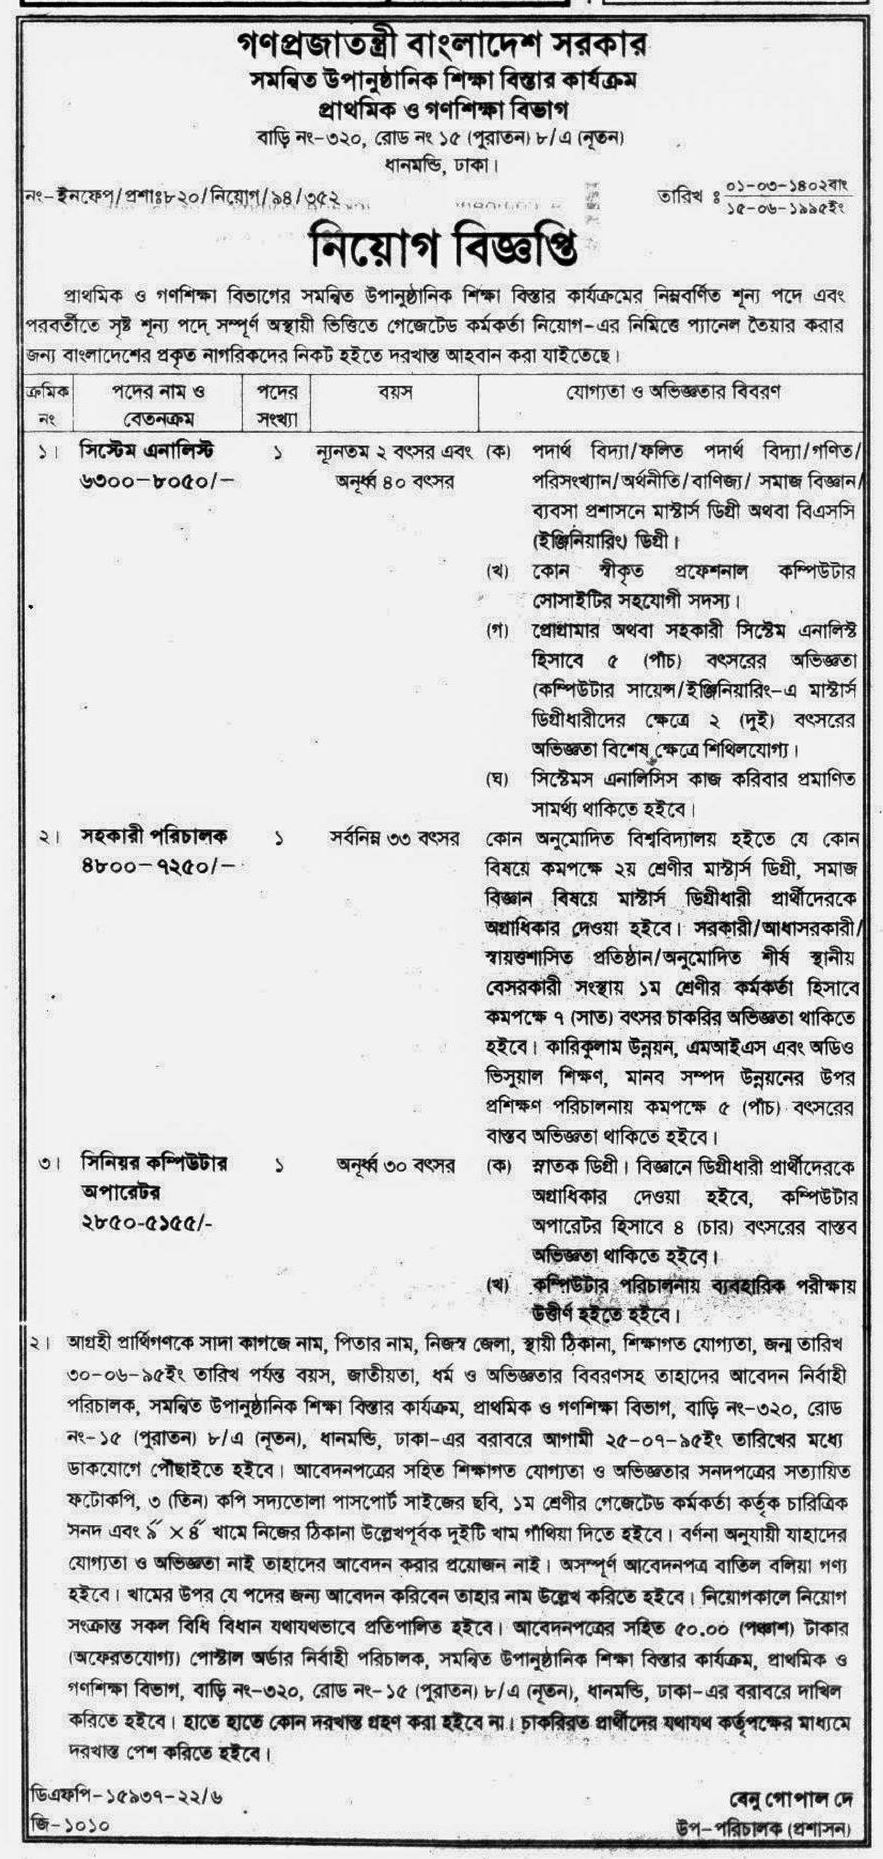 গণপ্রজাতন্ত্রী বাংলাদেশ সরকার
সমন্বিত উপানুষ্ঠানিক শিক্ষা বিস্তার কার্যক্রম
প্রাথমিক ও গণশিক্ষা বিভাগ
বাড়ি নং-৩২০, রোড নং ১৫ (পুরাতন) ৮/এ (নূতন)
ধানমন্ডি, ঢাকা।
নং-ইনফেপ/প্রশাঃ৮২০/নিয়োগ/৯৪/৩৫২
তারিখ ঃ ০১-০৩-১৪০২বাং
১৫-০৬-১৯৯৫ইং
নিয়োগ বিজ্ঞপ্তি
প্রাথমিক ও গণশিক্ষা বিভাগের সমন্বিত উপানুষ্ঠানিক শিক্ষা বিস্তার কার্যক্রমের নিম্নবর্ণিত শূন্য পদে এবং
পরবর্তীতে সৃষ্ট শূন্য পদে সম্পূর্ণ অস্থায়ী ভিত্তিতে গেজেটেড কর্মকর্তা নিয়োগ-এর নিমিত্তে প্যানেল তৈয়ার করার
জন্য বাংলাদেশের প্রকৃত নাগরিকদের নিকট হইতে দরখাস্ত আহবান করা যাইতেছে।
ক্রমিক পদের নাম ও পদের বয়স যোগ্যতা ও অভিজ্ঞতার বিবরণ
নং বেতনক্রম সংখ্যা
১। সিস্টেম এনালিস্ট ১ ন্যূনতম ২ বৎসর এবং (ক) পদার্থ বিদ্যা/ফলিত পদার্থ বিদ্যা/গণিত/
৬৩০০-৮০৫০/- অনূর্ধ্ব ৪০ বৎসর পরিসংখ্যান/অর্থনীতি/বাণিজ্য/ সমাজ বিজ্ঞান/
ব্যবসা প্রশাসনে মাস্টার্স ডিগ্রী অথবা বিএসসি
(ইঞ্জিনিয়ারিং) ডিগ্রী।
(খ) কোন স্বীকৃত প্রফেশনাল কম্পিউটার
সোসাইটির সহযোগী সদস্য।
(গ) প্রোগ্রামার অথবা সহকারী সিস্টেম এনালিস্ট
হিসাবে ৫ (পাঁচ) বৎসরের অভিজ্ঞতা
(কম্পিউটার সায়েন্স/ইঞ্জিনিয়ারিং-এ মাস্টার্স
ডিগ্রীধারীদের ক্ষেত্রে ২ (দুই) বৎসরের
অভিজ্ঞতা বিশেষ ক্ষেত্রে শিথিলযোগ্য।
(ঘ) সিস্টেমস এনালিসিস কাজ করিবার প্রমাণিত
সামর্থ্য থাকিতে হইবে।
২। সহকারী পরিচালক ১ সর্বনিম্ন ৩৩ বৎসর কোন অনুমোদিত বিশ্ববিদ্যালয় হইতে যে কোন
৪৮০০-৭২৫০/- বিষয়ে কমপক্ষে ২য় শ্রেণীর মাস্টার্স ডিগ্রী, সমাজ
বিজ্ঞান বিষয়ে মাস্টার্স ডিগ্রীধারী প্রার্থীদেরকে
অগ্রাধিকার দেওয়া হইবে। সরকারী/আধাসরকারী/
স্বায়ত্তশাসিত প্রতিষ্ঠান/অনুমোদিত শীর্ষ স্থানীয়
বেসরকারী সংস্থায় ১ম শ্রেণীর কর্মকর্তা হিসাবে
কমপক্ষে ৭ (সাত) বৎসর চাকরির অভিজ্ঞতা থাকিতে
হইবে। কারিকুলাম উন্নয়ন, এমআইএস এবং অডিও
ভিসুয়াল শিক্ষণ, মানব সম্পদ উন্নয়নের উপর
প্রশিক্ষণ পরিচালনায় কমপক্ষে ৫ (পাঁচ) বৎসরের
বাস্তব অভিজ্ঞতা থাকিতে হইবে।
৩। সিনিয়র কম্পিউটার ১ অনূর্ধ্ব ৩০ বৎসর (ক) স্নাতক ডিগ্রী। বিজ্ঞানে ডিগ্রীধারী প্রার্থীদেরকে
অপারেটর অগ্রাধিকার দেওয়া হইবে, কম্পিউটার
২৮৫০-৫১৫৫/- অপারেটর হিসাবে ৪ (চার) বৎসরের বাস্তব
অভিজ্ঞতা থাকিতে হইবে।
(খ) কম্পিউটার পরিচালনায় ব্যবহারিক পরীক্ষায়
উত্তীর্ণ হইতে হইবে।
২। আগ্রহী প্রার্থিগণকে সাদা কাগজে নাম, পিতার নাম, নিজস্ব জেলা, স্থায়ী ঠিকানা, শিক্ষাগত যোগ্যতা, জন্ম তারিখ
৩০-০৬-৯৫ইং তারিখ পর্যন্ত বয়স, জাতীয়তা, ধর্ম ও অভিজ্ঞতার বিবরণসহ তাহাদের আবেদন নির্বাহী
পরিচালক, সমন্বিত উপানুষ্ঠানিক শিক্ষা বিস্তার কার্যক্রম, প্রাথমিক ও গণশিক্ষা বিভাগ, বাড়ি নং-৩২০, রোড
নং-১৫ (পুরাতন) ৮/এ (নূতন), ধানমন্ডি, ঢাকা-এর বরাবরে আগামী ২৫-০৭-৯৫ইং তারিখের মধ্যে
ডাকযোগে পৌঁছাইতে হইবে। আবেদনপত্রের সহিত শিক্ষাগত যোগ্যতা ও অভিজ্ঞতার সনদপত্রের সত্যায়িত
ফটোকপি, ৩ (তিন) কপি সদ্যতোলা পাসপোর্ট সাইজের ছবি, ১ম শ্রেণীর গেজেটেড কর্মকর্তা কর্তৃক চারিত্রিক
সনদ এবং ৯″ × ৪″ খামে নিজের ঠিকানা উল্লেখপূর্বক দুইটি খাম গাঁথিয়া দিতে হইবে। বর্ণনা অনুযায়ী যাহাদের
যোগ্যতা ও অভিজ্ঞতা নাই তাহাদের আবেদন করার প্রয়োজন নাই। অসম্পূর্ণ আবেদনপত্র বাতিল বলিয়া গণ্য
হইবে। খামের উপর যে পদের জন্য আবেদন করিবেন তাহার নাম উল্লেখ করিতে হইবে। নিয়োগকালে নিয়োগ
সংক্রান্ত সকল বিধি বিধান যথাযথভাবে প্রতিপালিত হইবে। আবেদনপত্রের সহিত ৫০.০০ (পঞ্চাশ) টাকার
(অফেরতযোগ্য) পোস্টাল অর্ডার নির্বাহী পরিচালক, সমন্বিত উপানুষ্ঠানিক শিক্ষা বিস্তার কার্যক্রম, প্রাথমিক ও
গণশিক্ষা বিভাগ, বাড়ি নং-৩২০, রোড নং-১৫ (পুরাতন) ৮/এ (নূতন), ধানমন্ডি, ঢাকা-এর বরাবরে দাখিল
করিতে হইবে। হাতে হাতে কোন দরখাস্ত গ্রহণ করা হইবে না। চাকরিরত প্রার্থীদের যথাযথ কর্তৃপক্ষের মাধ্যমে
দরখাস্ত পেশ করিতে হইবে।
ডিএফপি-১৫৯৩৭-২২/৬
জি-১০১০
বেনু গোপাল দে
উপ-পরিচালক (প্রশাসন)